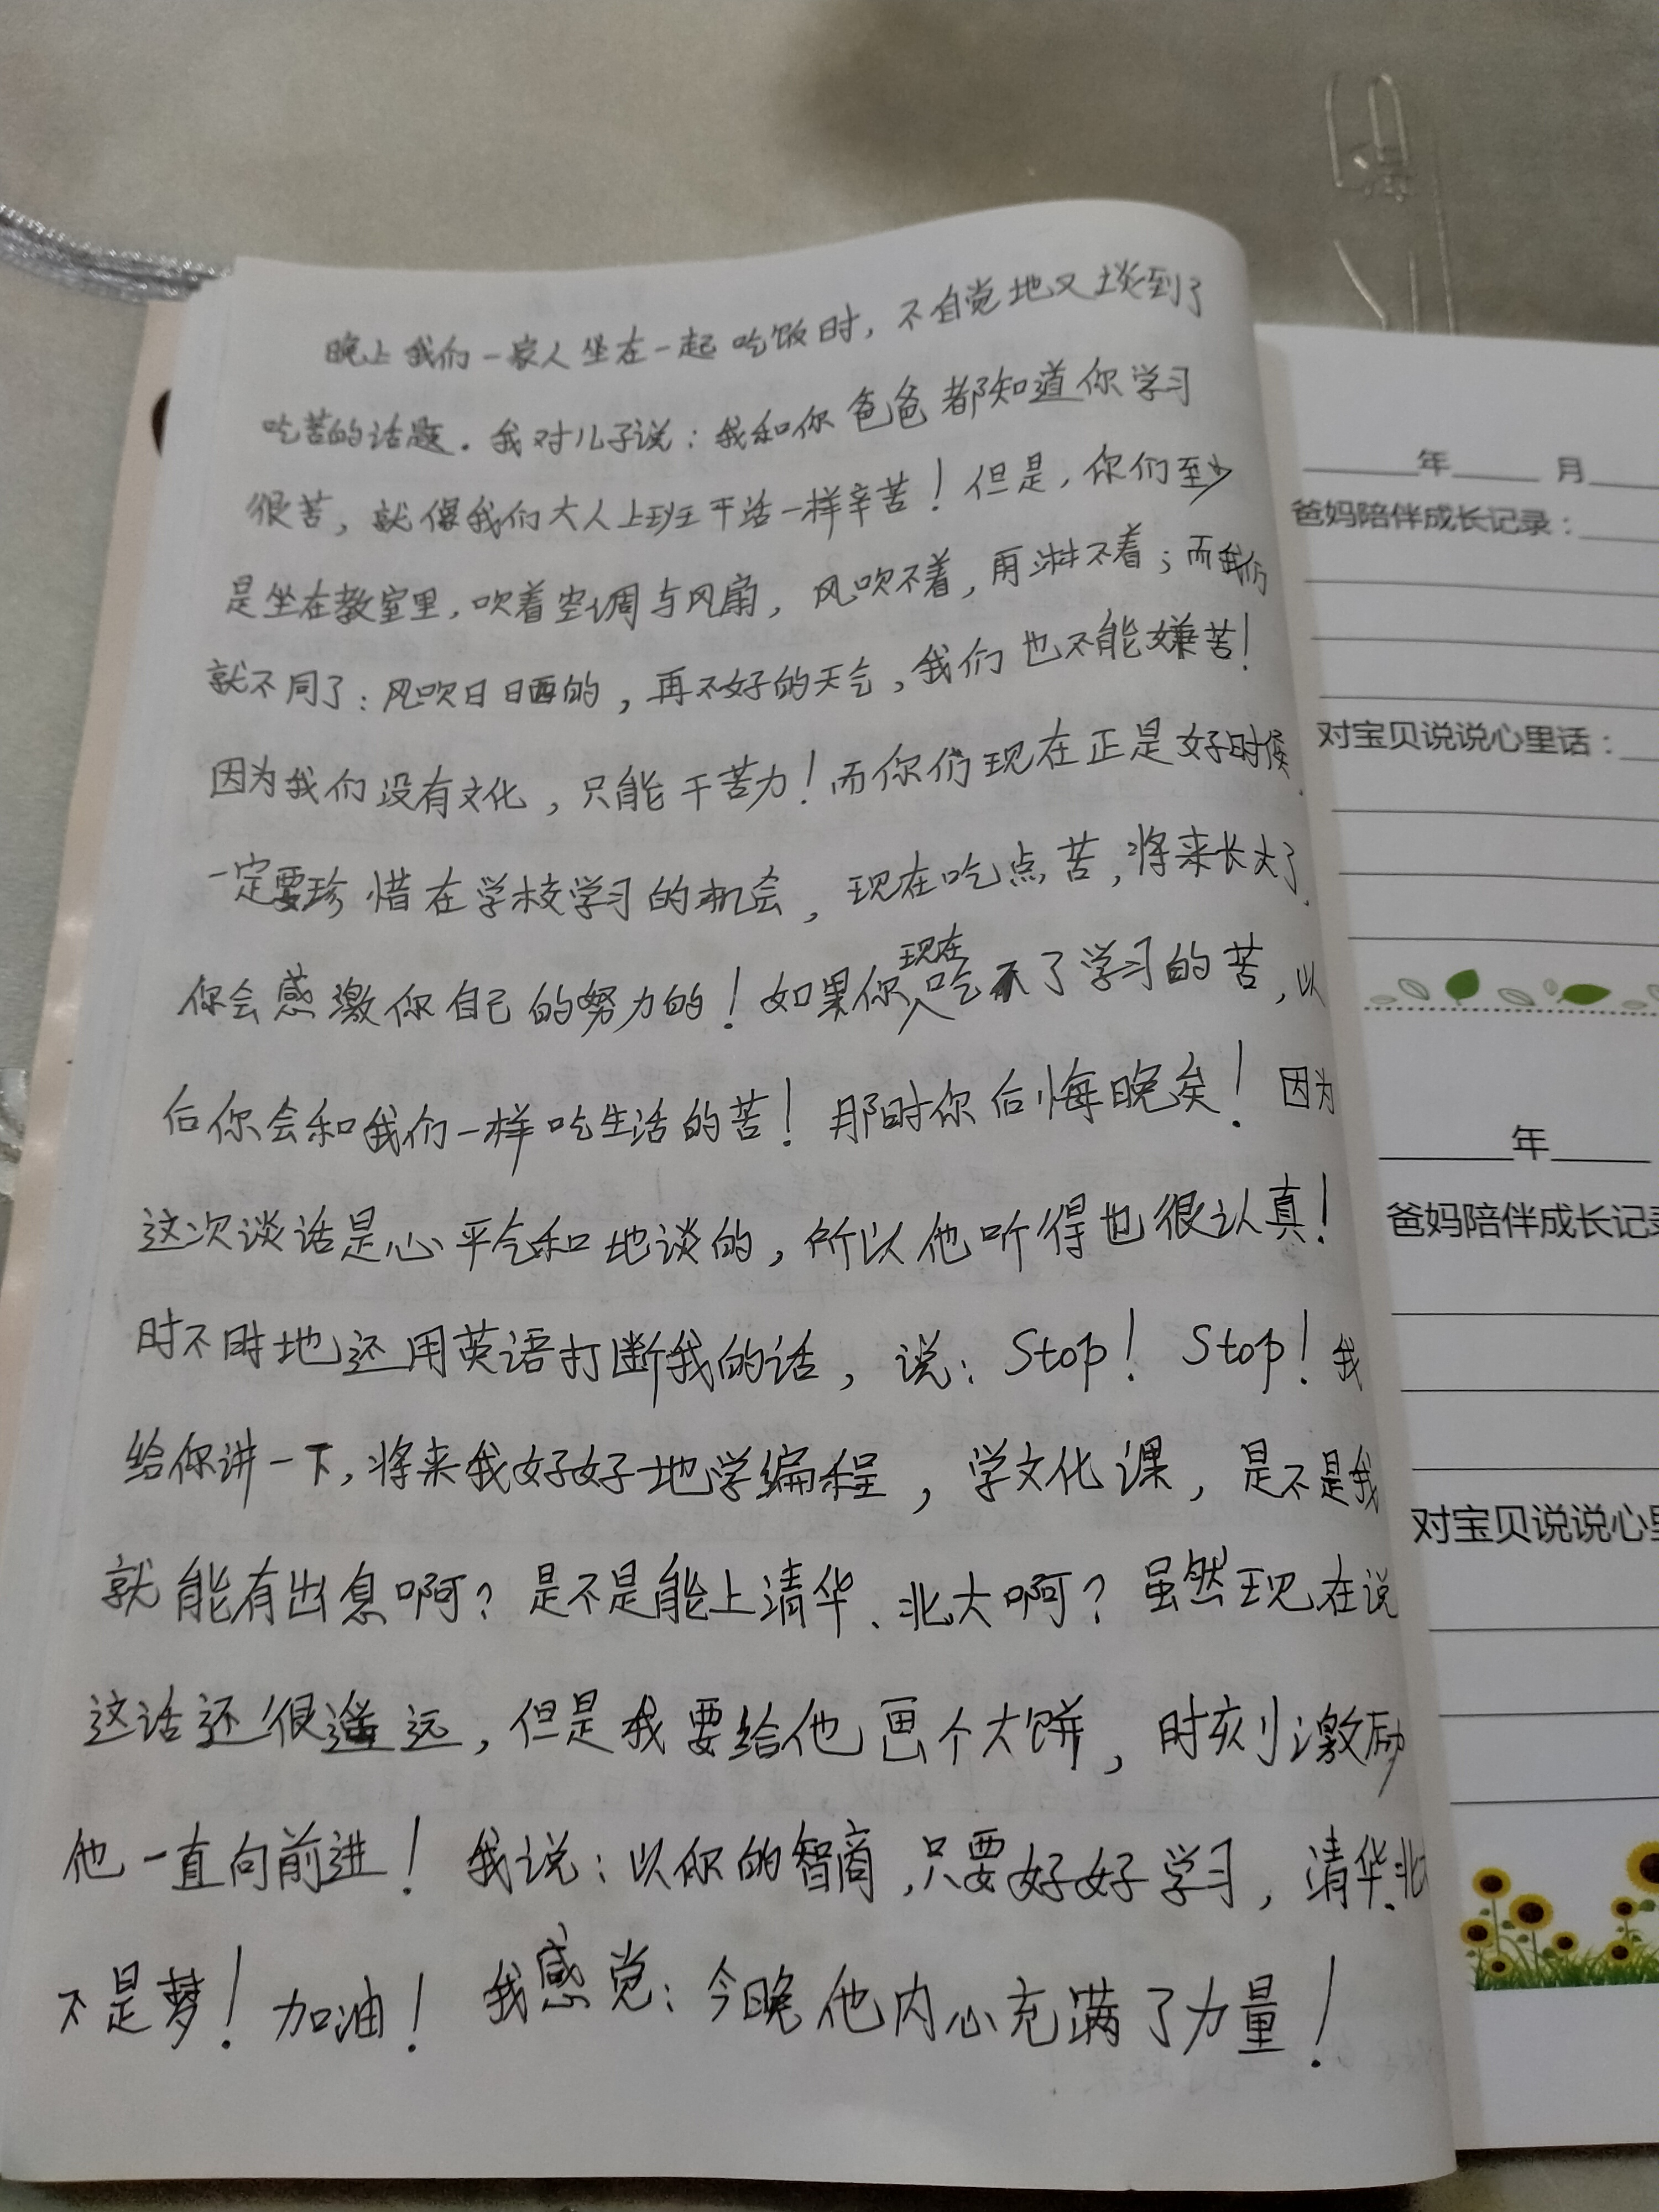 晚上我们一家人坐在一起吃饭时，不自觉地又谈到了
吃苦的话题。我对儿子说：我和你爸爸都知道你学习
很苦，就像我们大人上班干活一样辛苦！但是，你们至少
是坐在教室里，吹着空调与风扇，风吹不着，雨淋不着；而我们
就不同了：风吹日晒的，再不好的天气，我们也不能嫌苦！
因为我们没有文化，只能干苦力！而你们现在正是好时候，
一定要珍惜在学校学习的机会，现在吃点苦，将来长大了，
你会感激你自己的努力的！如果你现在吃不了学习的苦，以
后你会和我们一样吃生活的苦！那时你后悔晚矣！因为
这次谈话是心平气和地谈的，所以他听得也很认真！
时不时地还用英语打断我的话，说：Stop！Stop！我
给你讲一下，将来我好好地学编程，学文化课，是不是我
就能有出息啊？是不是能上清华、北大啊？虽然现在说
这话还很遥远，但是我要给他画个大饼，时刻激励
他一直向前进！我说：以你的智商，只要好好学习，清华、北
不是梦！加油！我感觉：今晚他内心充满了力量！
年 月
爸妈陪伴成长记录：
对宝贝说说心里话：
年
爸妈陪伴成长记录
对宝贝说说心里